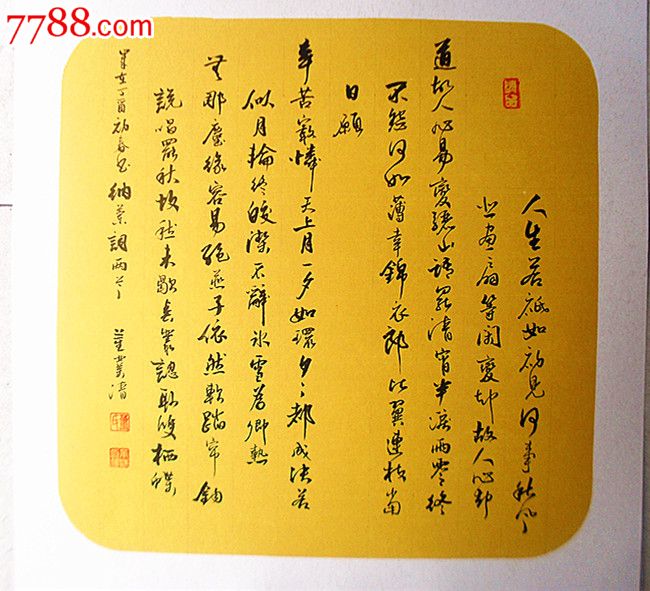 7788.com
人生若祗如初見何事秋風
悲畫扇等閒變却故人心却
道故人心易變驪山語罷清宵半淚雨零終
不怨何如薄幸錦衣郎比翼連枝當
日願
辛苦最憐天上月一夕如環夕〻都成玦若
似月輪終皎潔不辭冰雪為卿熱
無那塵緣容易絕燕子依然軟踏簾鈎
說唱罷秋墳愁未歇春叢認取雙栖蝶
歲在丁酉初春書納蘭詞兩首